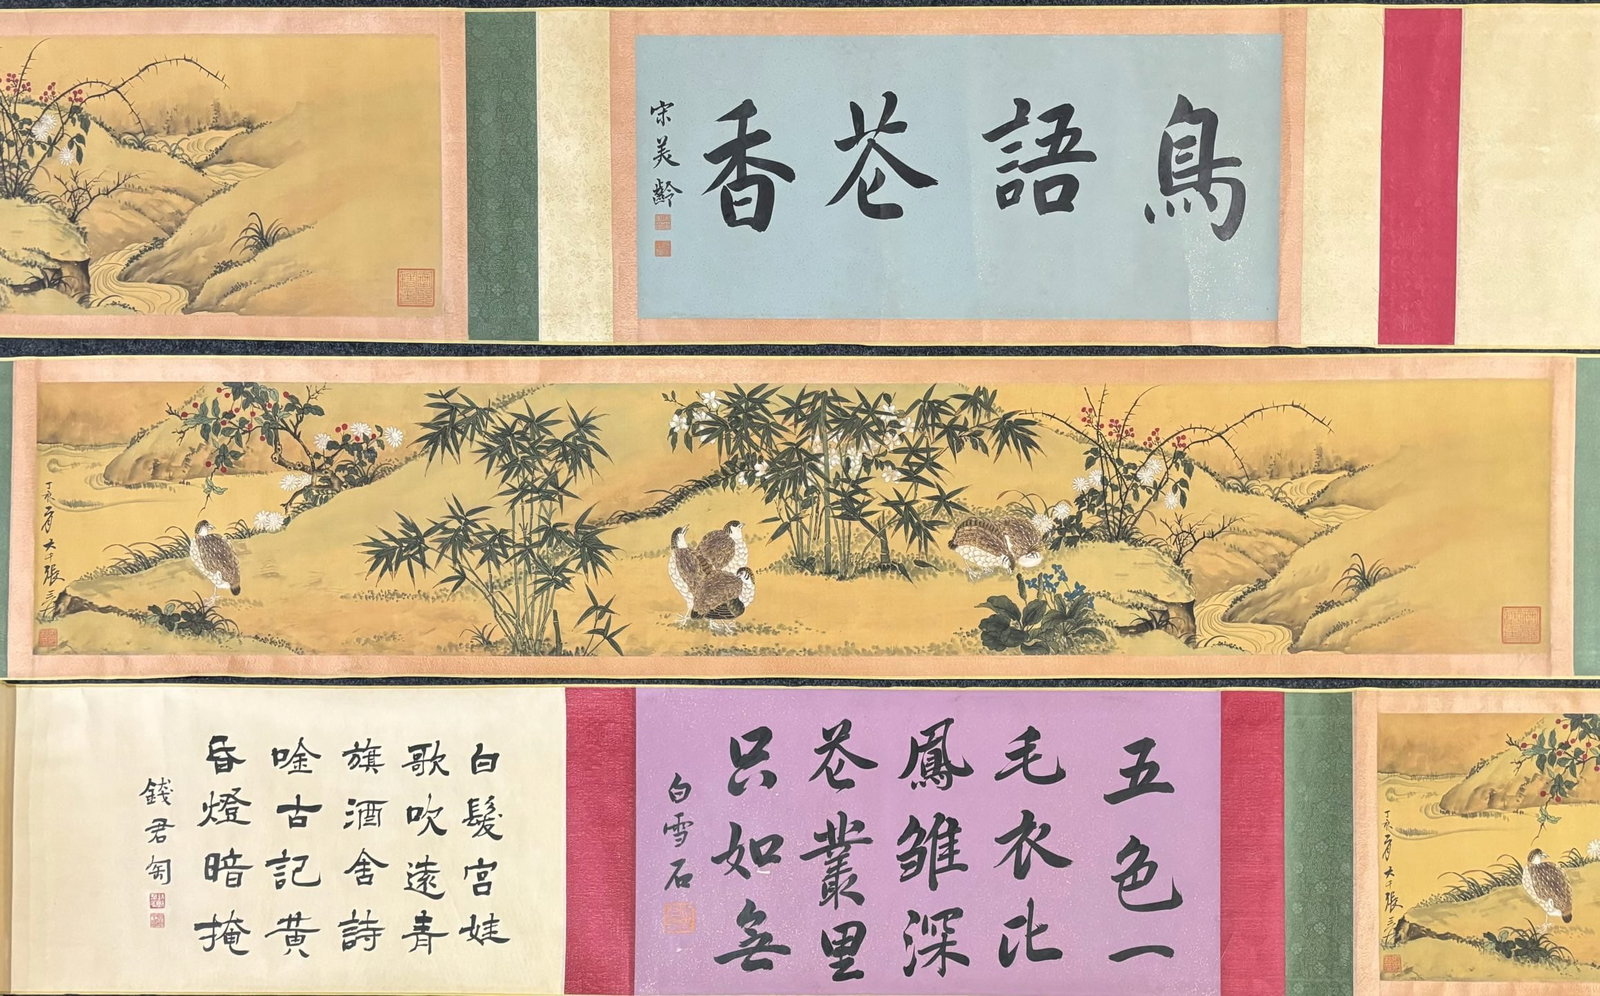 鳥語花香
宋美齡
大千張爰
大千張爰
五色一
毛衣比
鳳雛深
花叢里
只如無
白雪石
白髮宮娃
歌吹遠青
旗酒舍詩
唫古記黃
昏燈暗掩
錢君匋